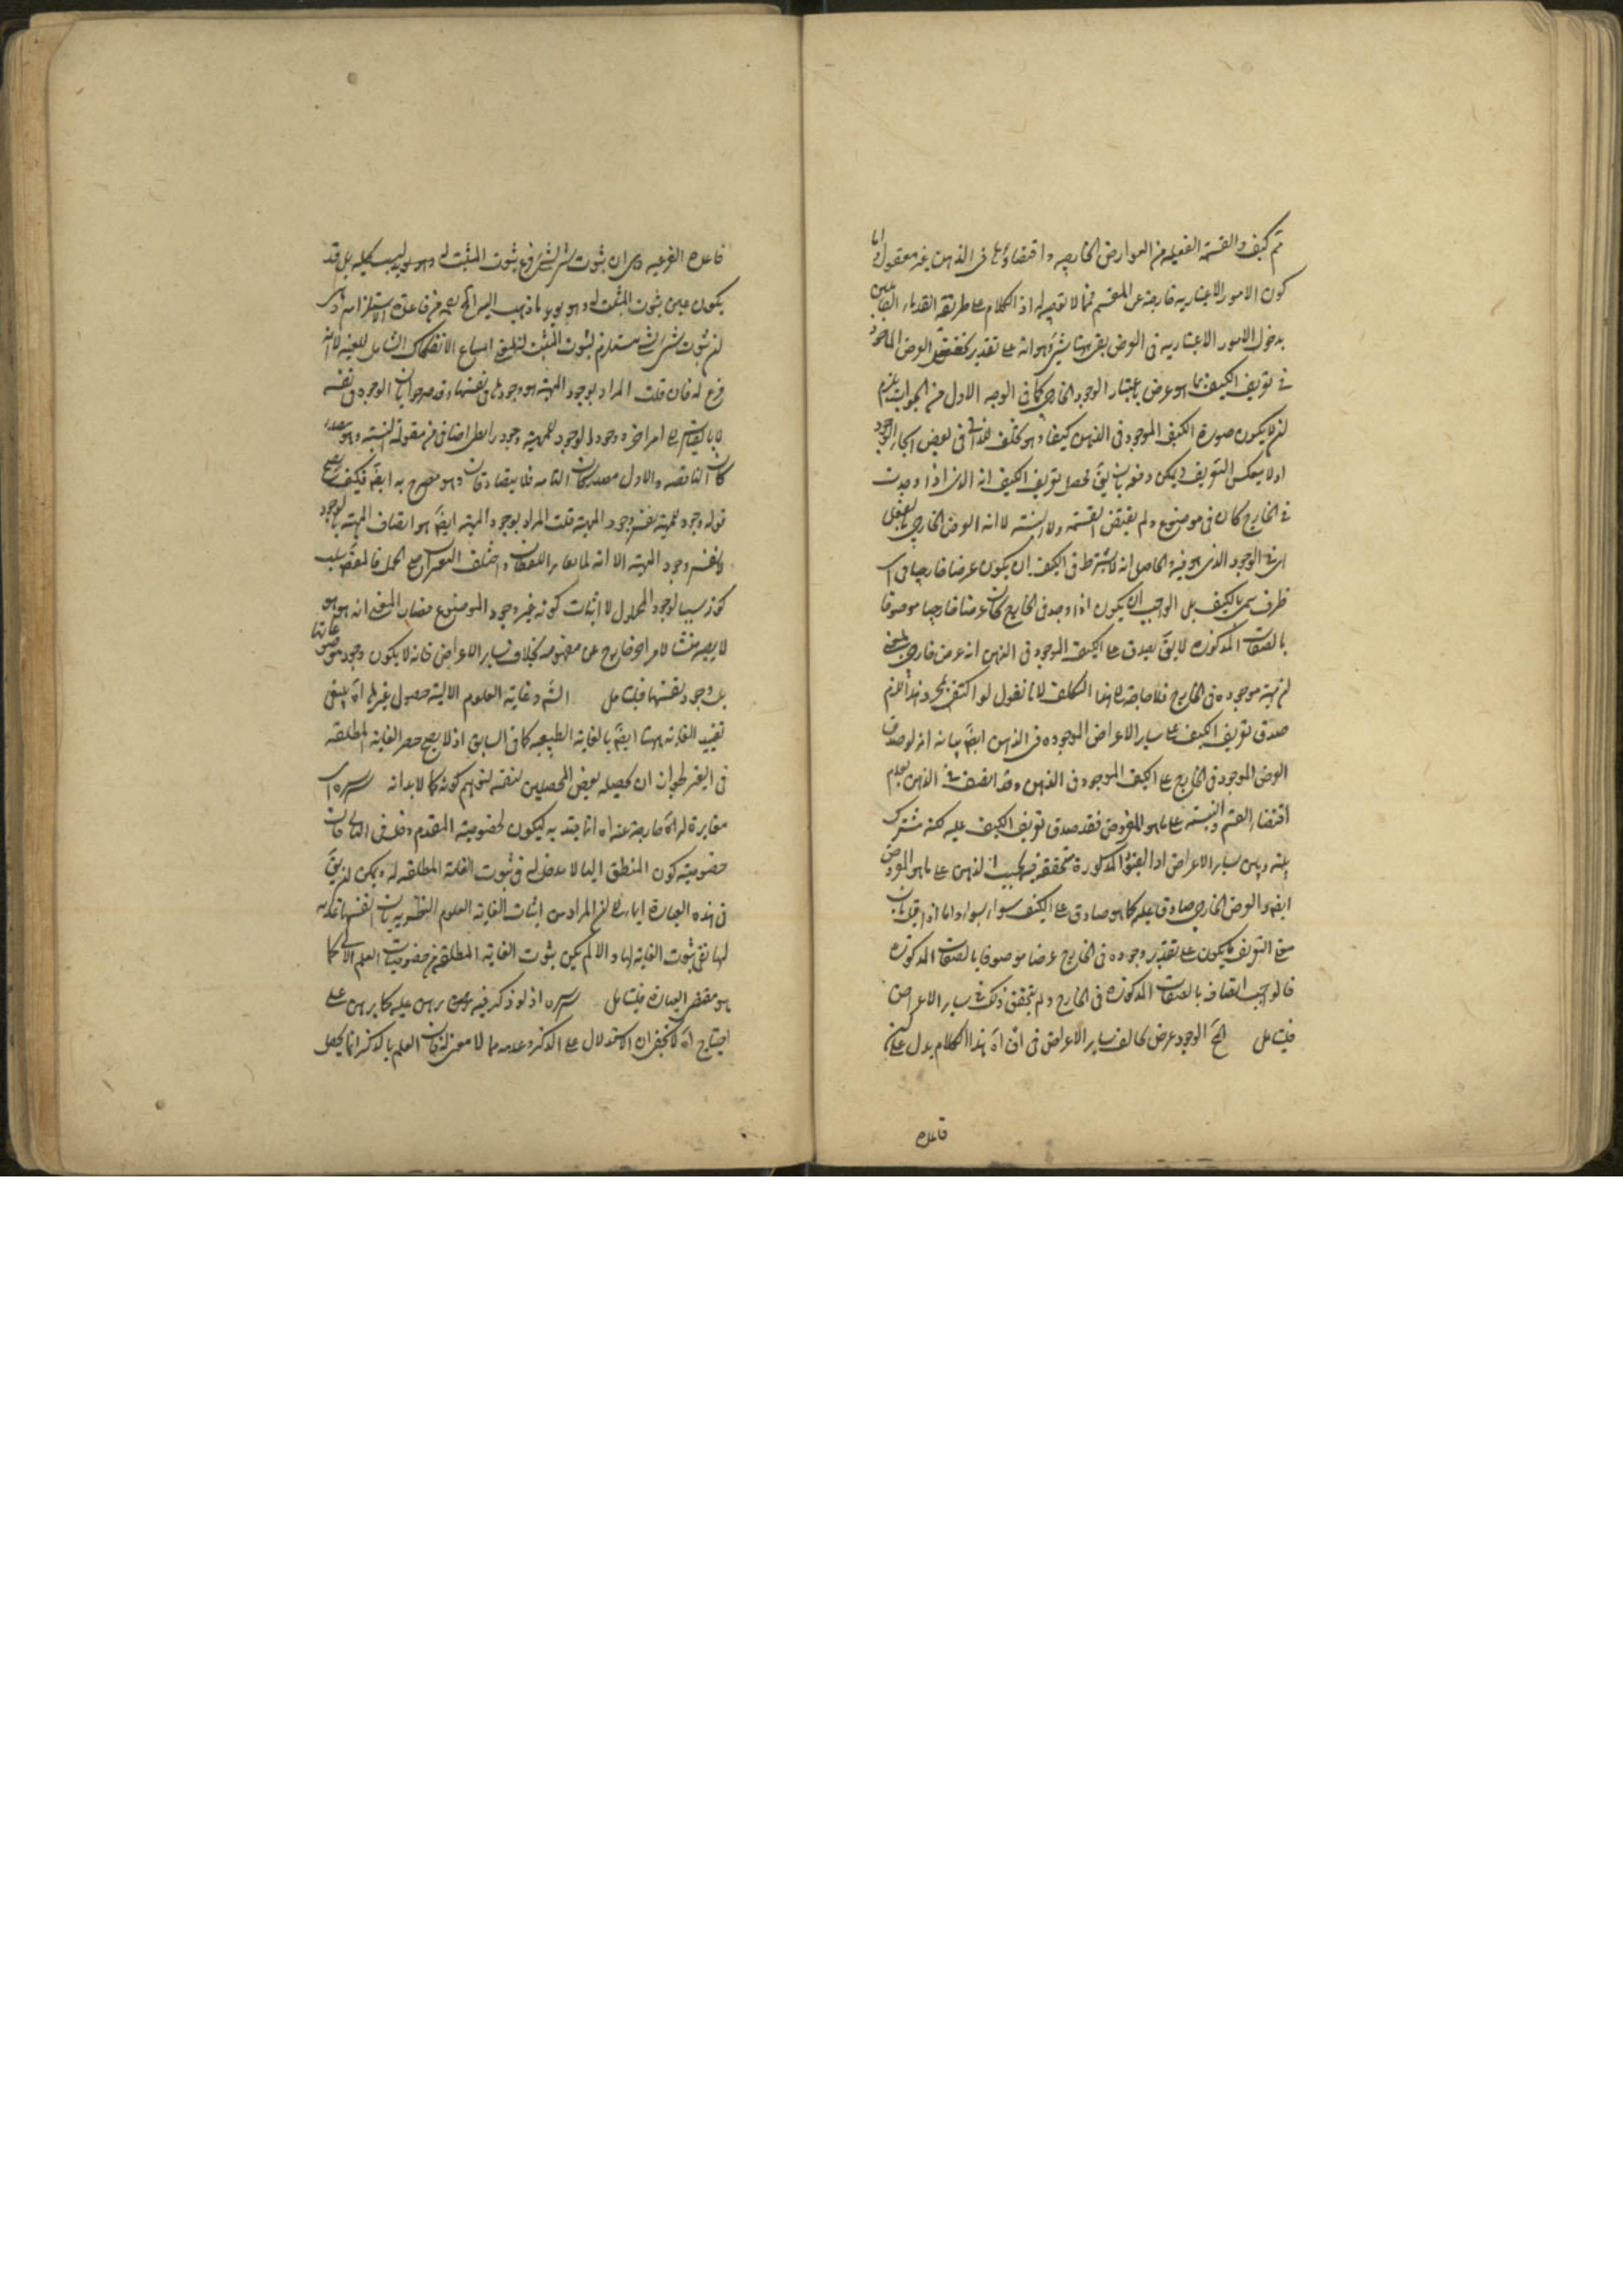 ثم كيف والقسمة الفعلية من العوارض الخارجية واقتضاؤها فى الذهن غير معقول واما
كون الامور الاعتبارية خارجة عن المقسم فمما لا تقريب له اذ الكلام على طريقة القدماء القائلين
بدخول الامور الاعتبارية فى العرض بقى ههنا شئ وهو انه على تقدير العرض الماخوذ
فى تعريف الكيف بما هو عرض باعتبار الوجود الخارجى كما فى الوجه الاول من الجواب يلزم
ان لا يكون صورة الكيف الموجود فى الذهن كيفا وهو
اولا ينعكس التعريف ويمكن دفعه بان يق محصل تعريف الكيف انه الذى اذا وجدت
فى الخارج كان فى موضوع ولم يقتض القسمة ولا النسبة لا انه العرض الخارجى بالفعل
اى فى الوجود الذى هو فيه والحاصل انه لا يشترط فى الكيف ان يكون عرضا خارجيا فى اى
ظرف سمى بالكيف بل الواجب ان يكون اذا وجد فى الخارج كان عرضا خارجيا موصوفا
بالصفات المذكورة لا يق يصدق على الكيف الموجود فى الذهن انه عرض خارجى بمعنى
ان مهيته موجودة فى الخارج فلا حاجة الى هذا التكلف لانا نقول لو اكتفى بمجرد هذا لزم
صدق تعريف الكيف على ساير الاعراض الموجودة فى الذهن ايضا بيانه انه لو صدق
العرض الموجود فى الخارج على الكيف الموجود فى الذهن وقد اتصف فى الذهن بعدم
اقتضاء القسم والنسبة على ما هو المفروض فقد صدق تعريف الكيف عليه لكنه مشترك
بينه وبين ساير الاعراض اذ القيود المذكورة متحققة فيها بحسب الذهن على ما هو المفروض
ايضا والعرض الخارجى صادق عليها كما هو صادق على الكيف سواء بسواء واما اذا قيل بان
معنى التعريف ما يكون على تقدير وجوده فى الخارج عرضا موصوفا بالصفات المذكورة
فالواجب اتصافه بالصفات المذكورة فى الخارج ولم يتحقق ذلك فى ساير الاعراض
فليتامل الخ الوجود عرض يخالف ساير الاعراض فى ان اه هذا الكلام يدل على ان
قاعدة
قاعدة الفرعية وهى ان ثبوت شئ لشئ فرع ثبوت المثبت له وليست كلية بل قد
يكون عين ثبوت المثبت له وهو يؤيد ما ذهب اليه من قاعدة الاستلزام وهى
ان ثبوت شئ لشئ مستلزم لثبوت المثبت له امتناع الانفكاك الشامل للعينية لا انه
فرع له فان قلت المراد بوجود المهية هو وجودها فى نفسها وقد صرحوا بان الوجود فى نفسه
لا بالقياس الى امر اخر ووجود الوجود للمهية وجود رابطى اضافى من مقولة النسبة وهو مصدر
كان الناقصة والاول مصدر كان التامة فلا يتصادقان وهو مصرح به ايضا فكيف يصح
قوله وجوده للمهية نفس وجود المهية قلت المراد بوجود المهية ايضا هو اتصاف المهية بالوجود
ونفس وجود المهية الا انه لما
كونه سببا لوجود المحلول لا اثبات كونه غير وجود الموضوع فصار المعنى انه هو هو
لا يصير منشأ لامر اخر خارج عن مفهومه بخلاف ساير الاعراض فانه لا يكون وجود موضوعاتها
بل وجود نفسها فليتامل الش وغاية العلوم الالية حصول غيرها اه ينبغى
تقييد الغاية ههنا ايضا بالغاية الطبيعية كما فى السابق اذ لا يصح حصر الغاية المطلقة
فى الغير لجواز ان يحصله بعض المحصلين لنفسه كونه كمالا بذاته
مغايرة له اه خارجة عنه اه انما يتد به ليكون لخصوصية المقدم دخل فى التالى فان
خصوصية كون المنطق اليا لا مدخل له فى ثبوت الغاية المطلقة له ويمكن ان يق
فى هذه العبارة ايماء الى ان المراد من اثبات الغاية العلوم النظرية بان انفسها غاية
لها نفى ثبوت الغاية لها والا لم يكن ثبوت الغاية المطلقة من خصوصيات العلم الالى كما
هو مقتضى العبارة فليتامل اذ لو ذكر فيه برهن عليه كما برهن على
احتياج اه لا يخفى ان الاستدلال على الذكر وعدمه مما لا معنى له فان العلم بالذكر انما يحصل